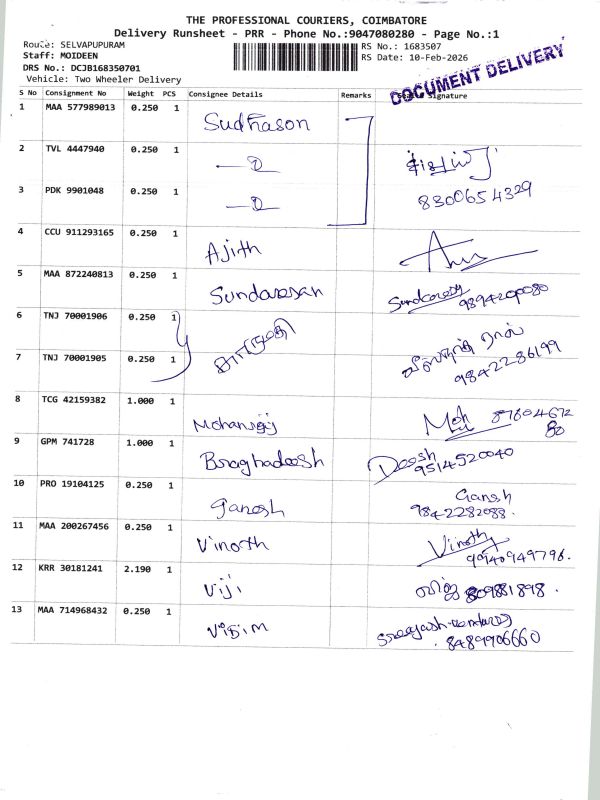 THE PROFESSIONAL COURIERS, COIMBATORE
Delivery Runsheet - PRR - Phone No.:9047080280 - Page No.:1
Route: SELVAPUPURAM
RS No.: 1683507
Staff: MOIDEEN
RS Date: 10-Feb-2026
DRS No.: DCJB168350701
Vehicle: Two Wheeler Delivery
DOCUMENT DELIVERY
S No Consignment No Weight PCS Consignee Details Remarks Signature
1 MAA 577989013 0.250 1 Sudhason
2 TVL 4447940 0.250 1
3 PDK 9901048 0.250 1 8300654329
4 CCU 911293165 0.250 1 Ajith
5 MAA 872240813 0.250 1 Sundaresan 9894200080
6 TNJ 70001906 0.250 1
7 TNJ 70001905 0.250 1 9842286199
8 TCG 42159382 1.000 1 Mohanraj Moh
9 GPM 741728 1.000 1 Braghadeesh Deesh 9514520040
10 PRO 19104125 0.250 1 Ganesh Ganesh 9842282088.
11 MAA 200267456 0.250 1 Vinoth Vinoth
12 KRR 30181241 2.190 1 Viji விஜி
13 MAA 714968432 0.250 1 8489906660